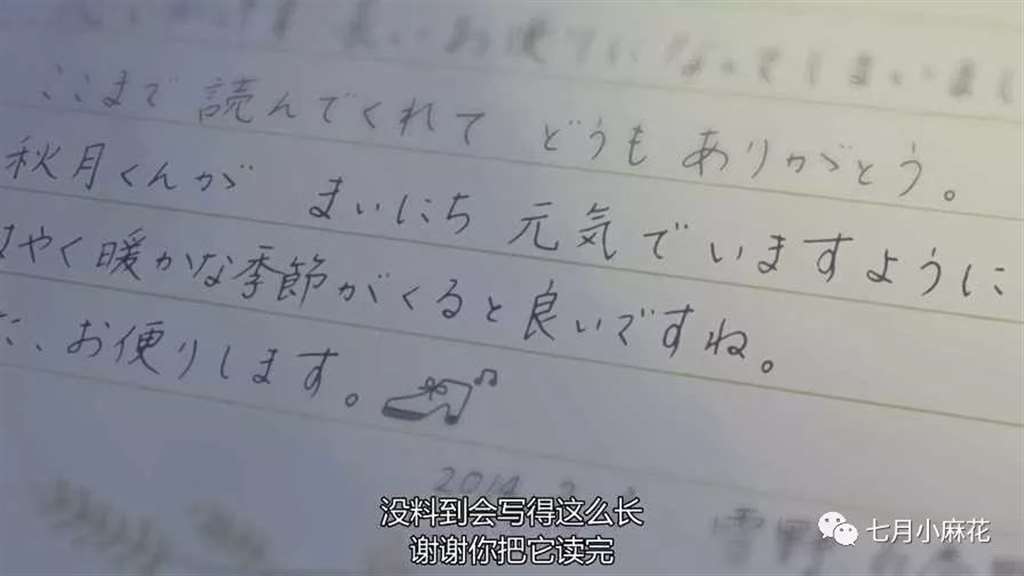 長いお便りになってしまいまし
ここまで 読んでくれて どうも ありがとう。
秋月くんが まいにち 元気でいますように
はやく暖かな季節がくると良いですね。
お便りします。
2014
雪野
没料到会写得这么长
谢谢你把它读完
七月小麻花